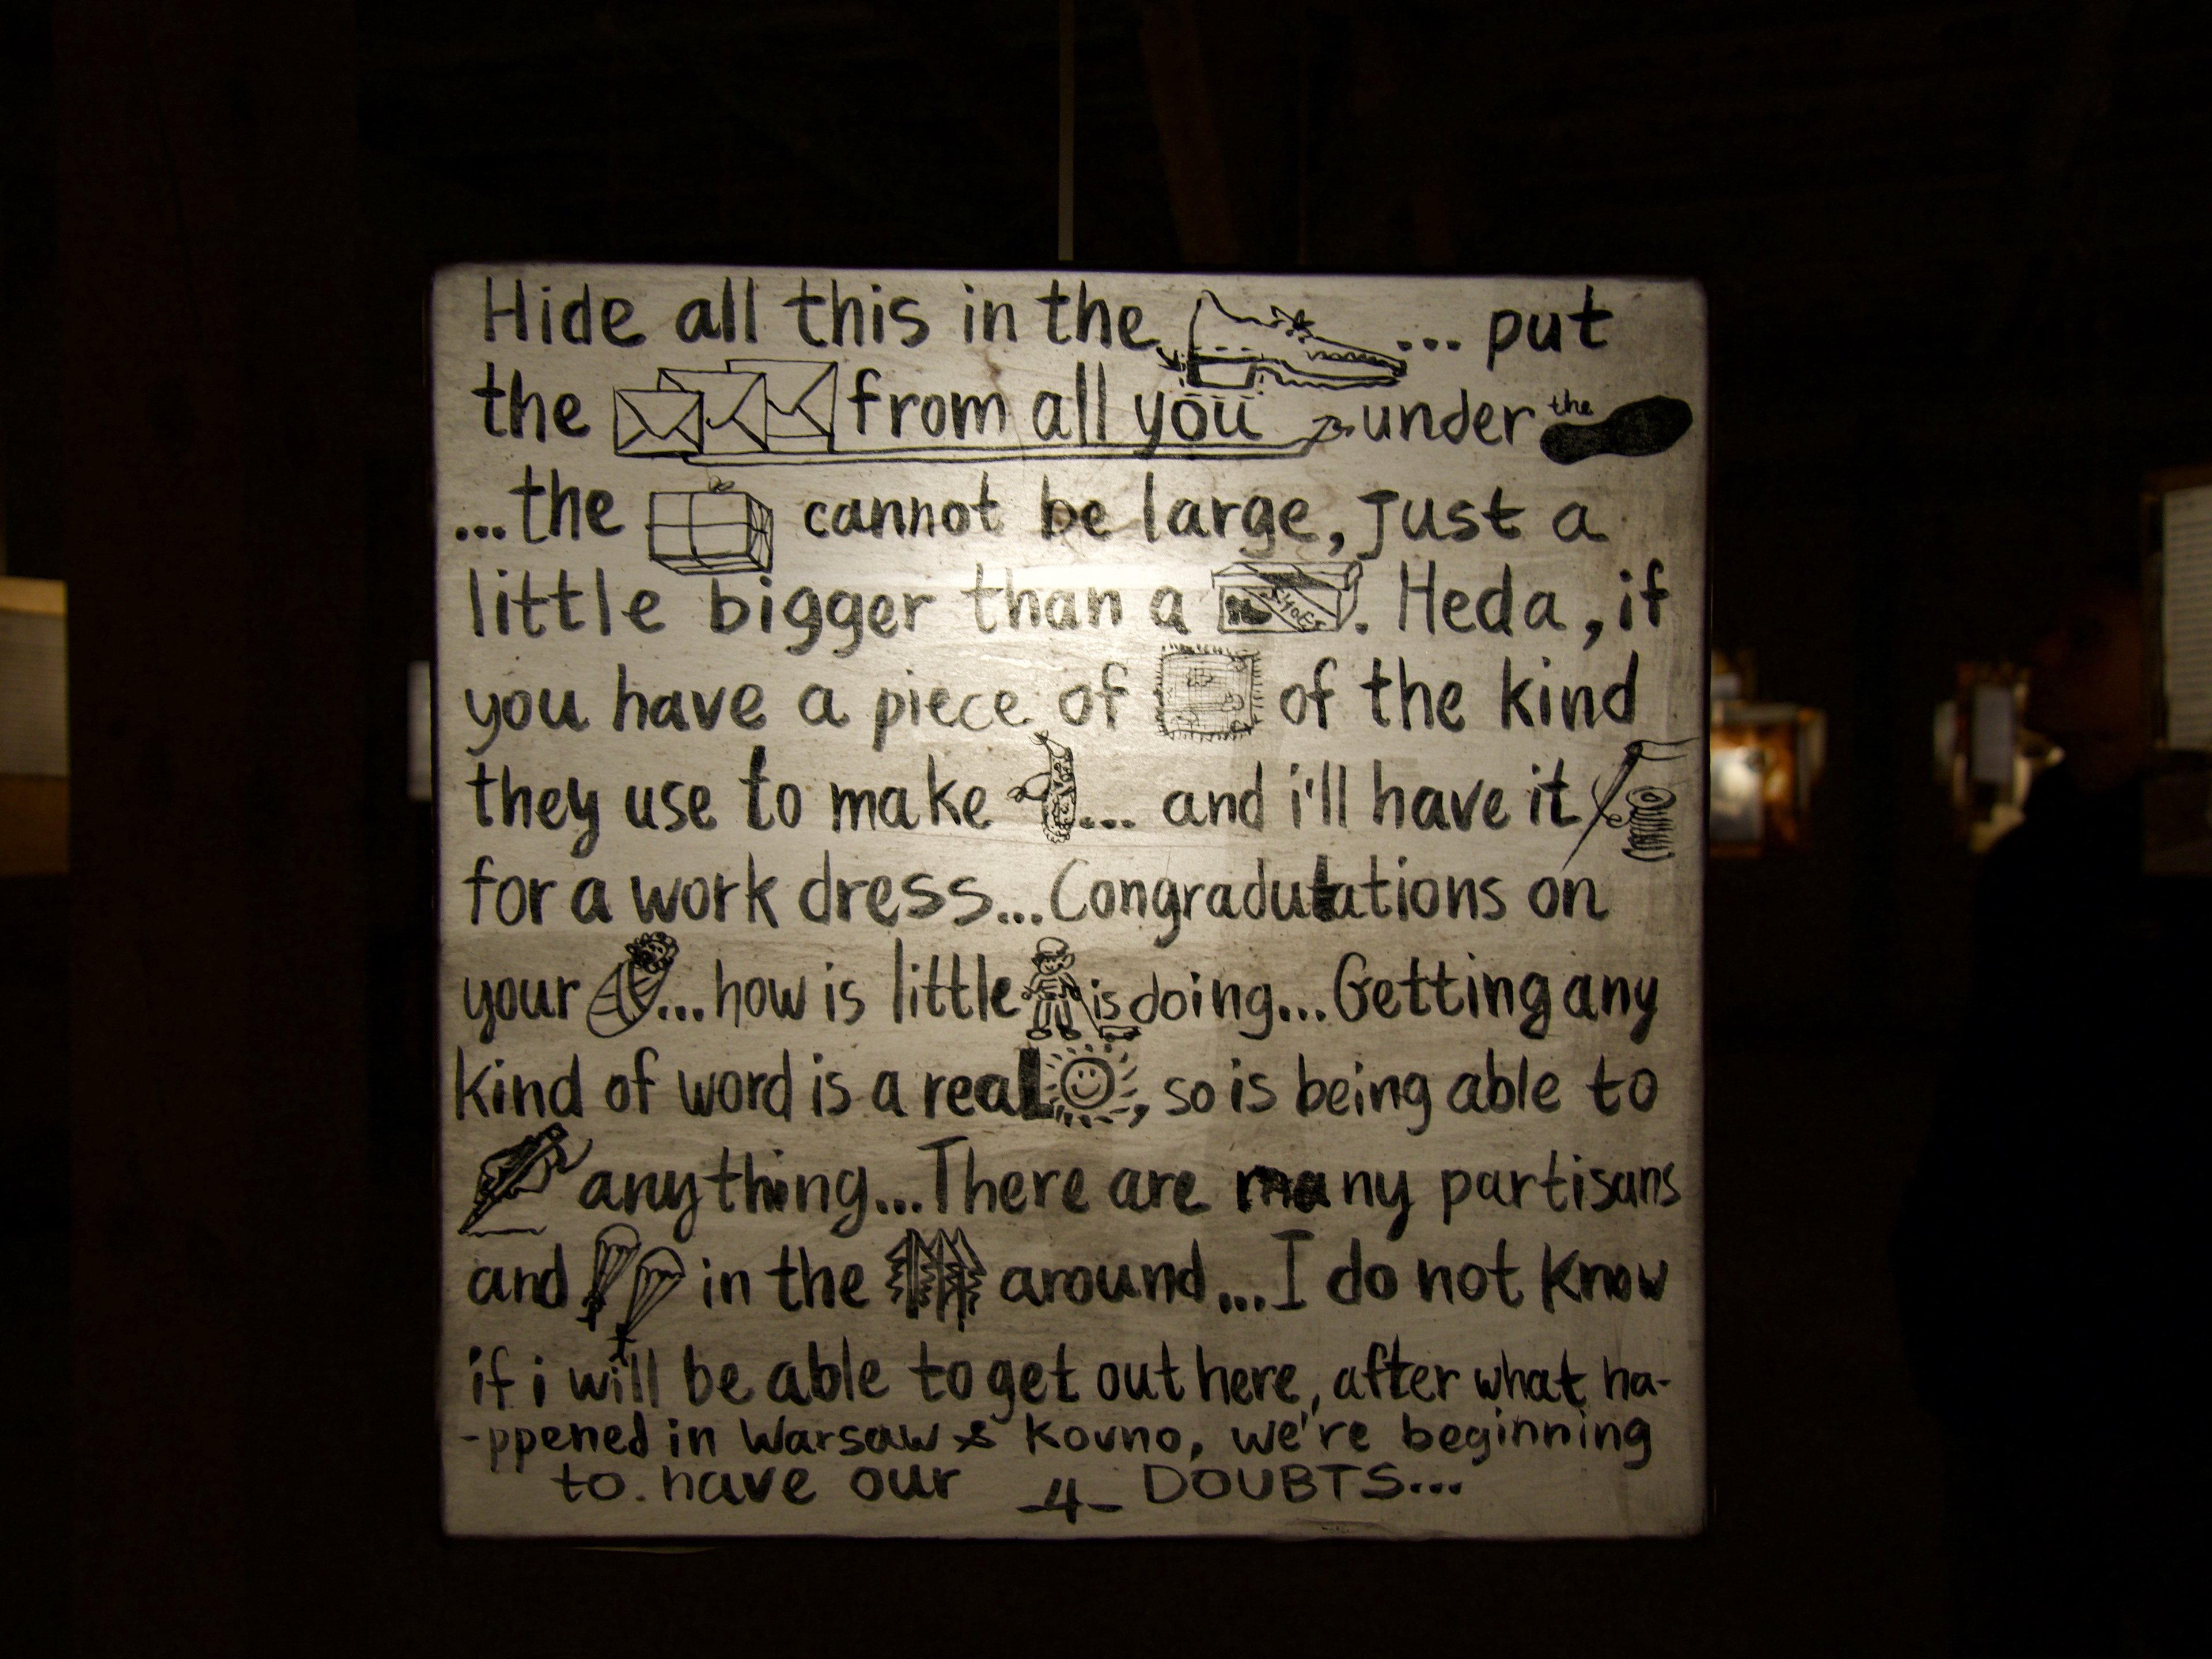 Hide all this in the ... put
the from all you under the
...the cannot be large, just a
little bigger than a . Heda, if
you have a piece of of the kind
they use to make ... and i'll have it
for a work dress...Congradutations on
your ...how is little is doing...Getting any
kind of word is a real , so is being able to
anything...There are many partisans
and in the around...I do not know
if i will be able to get out here, after what ha-
-ppened in Warsaw & Kovno, we're beginning
to have our DOUBTS...
-4-